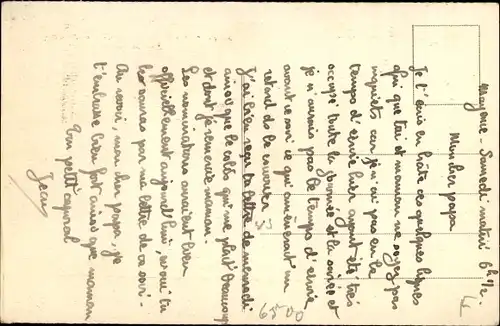 Mayence - Samedi matin 6h 1/2.
Mon cher papa
Je t'écris en hâte ces quelques lignes
afin que toi et maman ne soyez pas
inquiets car je n'ai pas eu le
temps d'écrire hier ayant été très
occupé toute la journée et la soirée et
je n'aurais pas le temps d'écrire
avant ce soir ce qui amènerait un
retard de le envoier
J'ai bien reçu ta lettre de mercredi
ainsi que le colis qui me plaît beaucoup
et dont je remercie maman.
Les nominations auraient lieu
officiellement aujourd'hui, ce qui tu
les sauras par ma lettre de ce soir.
Au revoir, mon cher papa, je
t'embrasse bien fort ainsi que maman
Ton petit caporal
Jean
6500